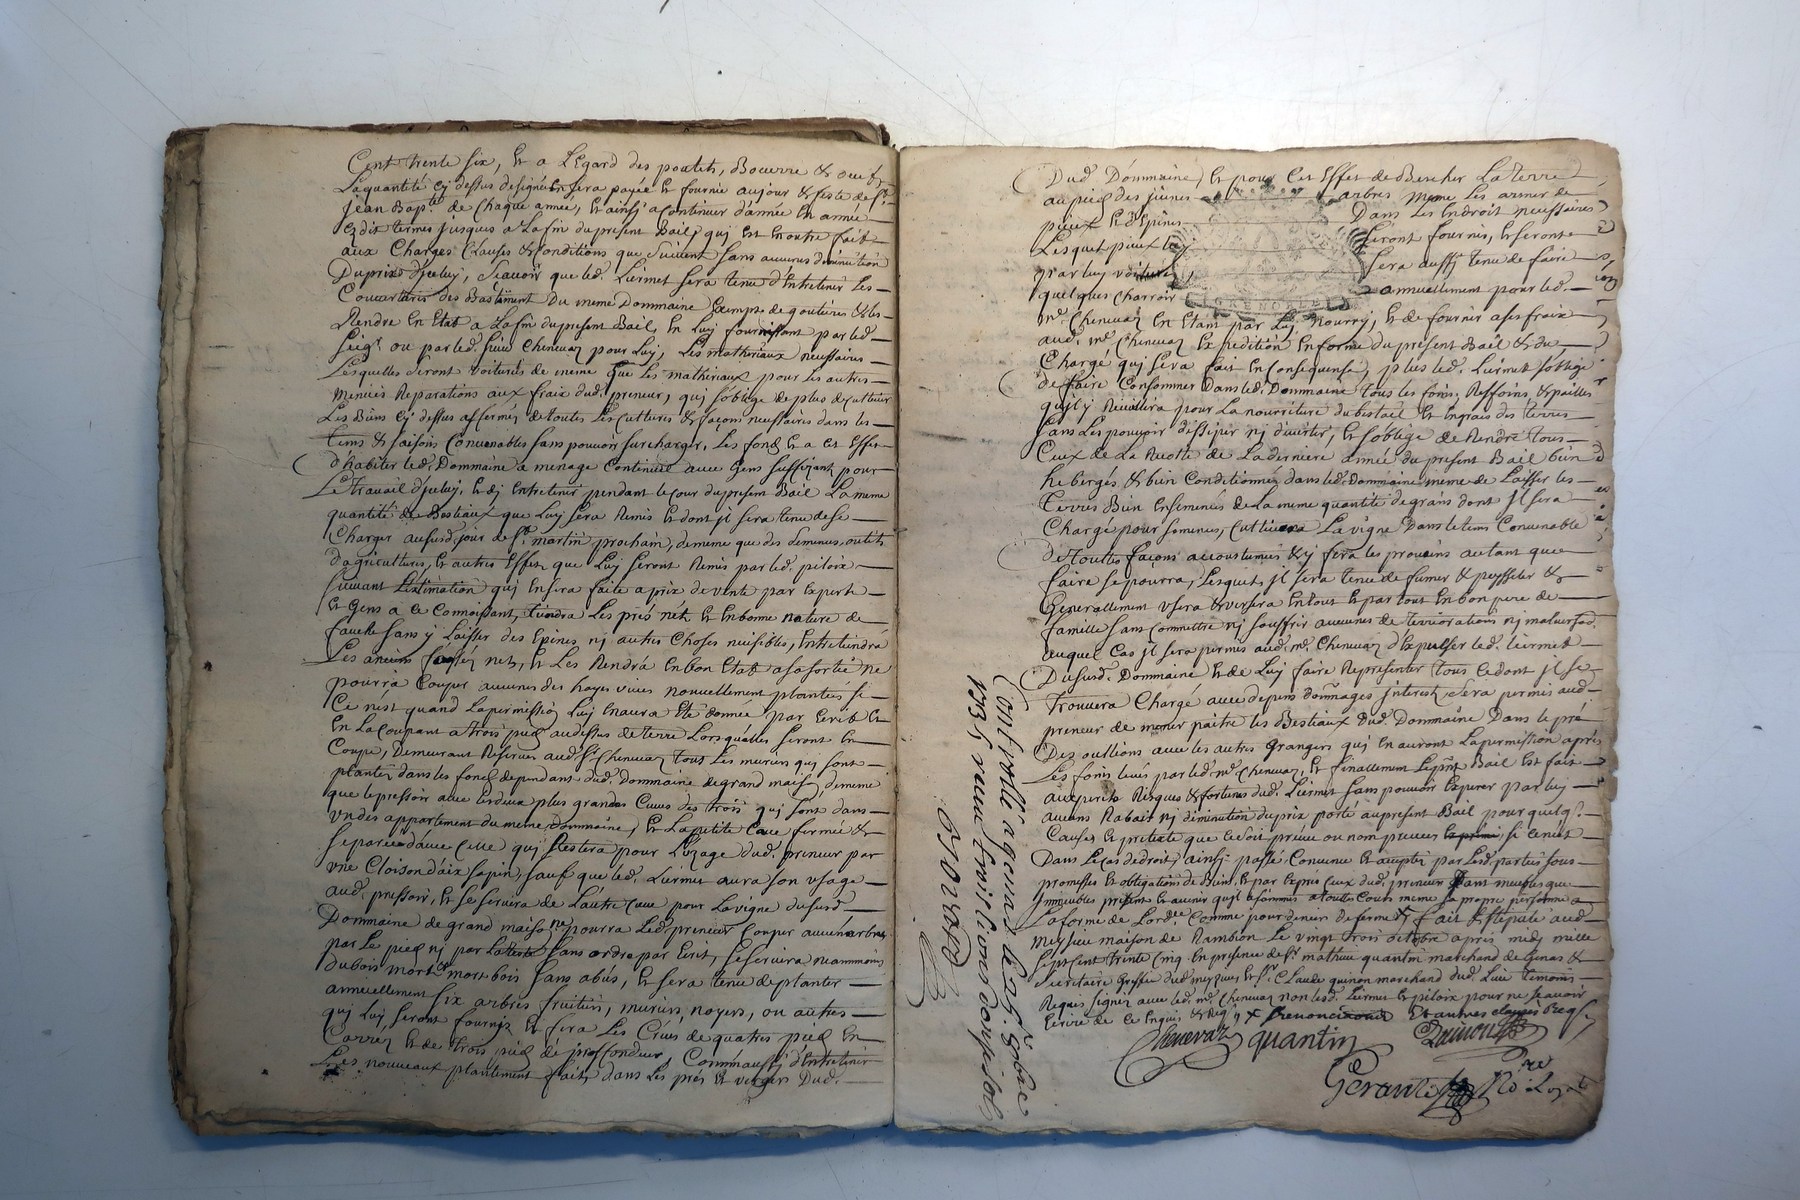 Cent trente six, et a L'Egard des poulets, Beurre & oeufs
La quantité cy dessus designée En sera payée et fournie aujour & feste de St
Jean Bapte de Chaque année, et ainsy a continuer d'année En année
Esdits termes jusques a La fin du present Bail, qui est En outre fait
aux Charges Clauses & Conditions que Suivent sans aucunes diminution
Du prix d'jceluy, Scavoir que led. Liermet sera tenu d'Entretenir Les
Couvertures des Bastiment Du meme Dommaine Exemps de goutieres & les
Rendre En Etat a La fin du present Bail, En Luy fournissant par led.
Seigr ou par led. Sieur Chenevaz pour Luy, Les mathériaux necessaires
Lesquelles seront voiturés de meme que Les mathériaux pour les autres
Menües Reparations aux fraix dud. preneur, qui s'oblige de plus de cultiver
Les Biens Cy dessus affermés de toutes Les cultures & façons necessaires dans les
tems & saisons Convenables sans pouvoir surcharger Les fonds Et a cet Effet
d'habiter led. Dommaine a menage Continuel avec Gens suffizant pour
Le travail d'jceluy, et d'y Entretenir pendant le cour du present Bail La meme
quantité de Bestiaux que Luy sera Remis et dont jl sera tenu de se
Charger aususd. jour de St martin prochain, de meme que des semences, outils
d'agricultures, et autres Effets que Luy seront Remis par led. piloix
suivant L'estimation qui En sera faite a prix de vente par Experts
et Gens a ce Connoissant, tiendra Les prés nets et En bonne nature de
fauche sans y Laisser des Epines nj autres Choses nuisibles, Entretiendra
Les anciens fossés nets, et Les Rendra En bon Etat a sa sortie ne
pourra Couper aucunes des hayes vives nouvellement plantées si
Ce n'est quand La permission Luy En aura Eté donnée par Ecrit Et
En La Coupant a trois pieds audessus de terre Lorsqu'elles seront En
Coupe, Demeurant Reservés aud. Sr Chenevaz tous Les muriers qui sont
plantés dans les fonds dependant dud. Dommaine de grand maison, de meme
que le pressoir avec Les deux plus grandes Cuves des trois qui sont dans
un des appartement du meme Dommaine, Et La petite Cave fermée &
separée d'avec Celle qui Restera pour L'uzage dud. preneur par
une Cloison d'aix sapin, sauf que led. Liermet aura son usage
aud. pressoir, et se servira de L'autre Cuve pour La vigne dususd.
Dommaine de grand maison ne pourra Led. preneur Couper aucun arbres
par Le pied nj par La teste sans ordre par Ecrit, se servira neammoins
du bois mort et mort bois sans abus, Et sera tenu de planter
annuellement six arbres fruitiers, muriers, noyers, ou autres
qui Luy seront fournis et fera Les Creus de quatres pieds En
Carrez et de trois pieds de proffondeur, Comme aussy d'Entretenir
Les nouveaux plantement faits dans Les prés et vergers Dud.
Dud. Dommaine, Et pour Cet Effet de Bescher La terre
au pied des jeunes arbres meme Les armer de
pieux et d'Epines Dans Les Endroit necessaires
Lesquels pieux luy seront fournis, et seront
par luy voiturés, sera aussy tenu de faire
quelques Charroir annuellement pour led.
GRENOBLE
mr. Chenevaz En Etant par Luy Nourry, Et de fournir a ses fraix
aud. mr. Chenevaz Expedition En forme du present Bail & du
Chargé qui sera fait En Consequense, plus led. Liermet s'oblige
de ffaire Consommer Dans led. Dommaine tous les foins, Reffoins & pailles
qu'il y Reculliera pour La nourriture du bestail et Engrais des terres
sans Les pouvoir d'issiper nj divertir, Et s'oblige de Rendre tous
Ceux de La Recolte de La derniere année du present Bail bien
hebergés & bien Conditionnés dans led. Dommaine meme de Laisser les
terres Bien Ensemencés de La meme quantité de grains dont jl sera
Chargé pour semences, Cultivera La vigne Dans le tems Convenable
de toutes façons accoustumées & y fera les provains autant que
faire se pourra, Lesquels jl sera tenu de fumer & &
Generallement usera & versera En tout et par tout En bon pere de
famille sans Commettre nj souffrir aucunes deterriorations nj malversaõ.
auquel Cas jl sera permis aud. mr. Chenevaz d'Expulser led. Liermet
Dusud. Dommaine et de Luy faire Representer tous ce dont jl se
trouvera Chargé avec depens dommages Interest, sera permis aud.
preneur de mener paitre les Bestiaux Dud. Dommaine Dans le pré
Des oullions avec les autres Grangers qui En auront La permission après
Les foins levés par led. mr. Chenevaz, Et finallement Le pnt Bail Est fait
aux perils Risques & fortunes dud. Liermet sans pouvoir Esperer par luy
aucuns Rabais nj diminution du prix porté au present Bail pour quelq.
Causes et pretexte que ce soit preveu ou non preveus si ce n'est
Dans Le Cas de droit, ainsy passé Convenu et accepté par Lesd. parties sous
promesses et obligations de Biens, et par Exprès Ceux dud. preneur tant meubles que
immeubles present et avenir qu'jl a soumis a toutes Cours meme sa propre personne a
La forme de Lordce Comme pour deniers de ferme & fait & stipulé aud.
Meyzieu maison de Rambion Le vingt trois octobre après midj mille
sept cent trente Cinq En presence de sr. mathieu quantin marchand de Genas &
secretaire Greffier dud. meyzieu et sr. Claude quinon marchand dud. Lieu temoins
Requis signez avec led. mr. Chenevaz non lesd. Liermet et piloix pour ne scavoir
Ecrire de Ce Enquis & Req.
Chenevaz quantin Quinon
Gerantet No.re Royal
Controllé a genas le 25e 8bre
1735 receu trois livres